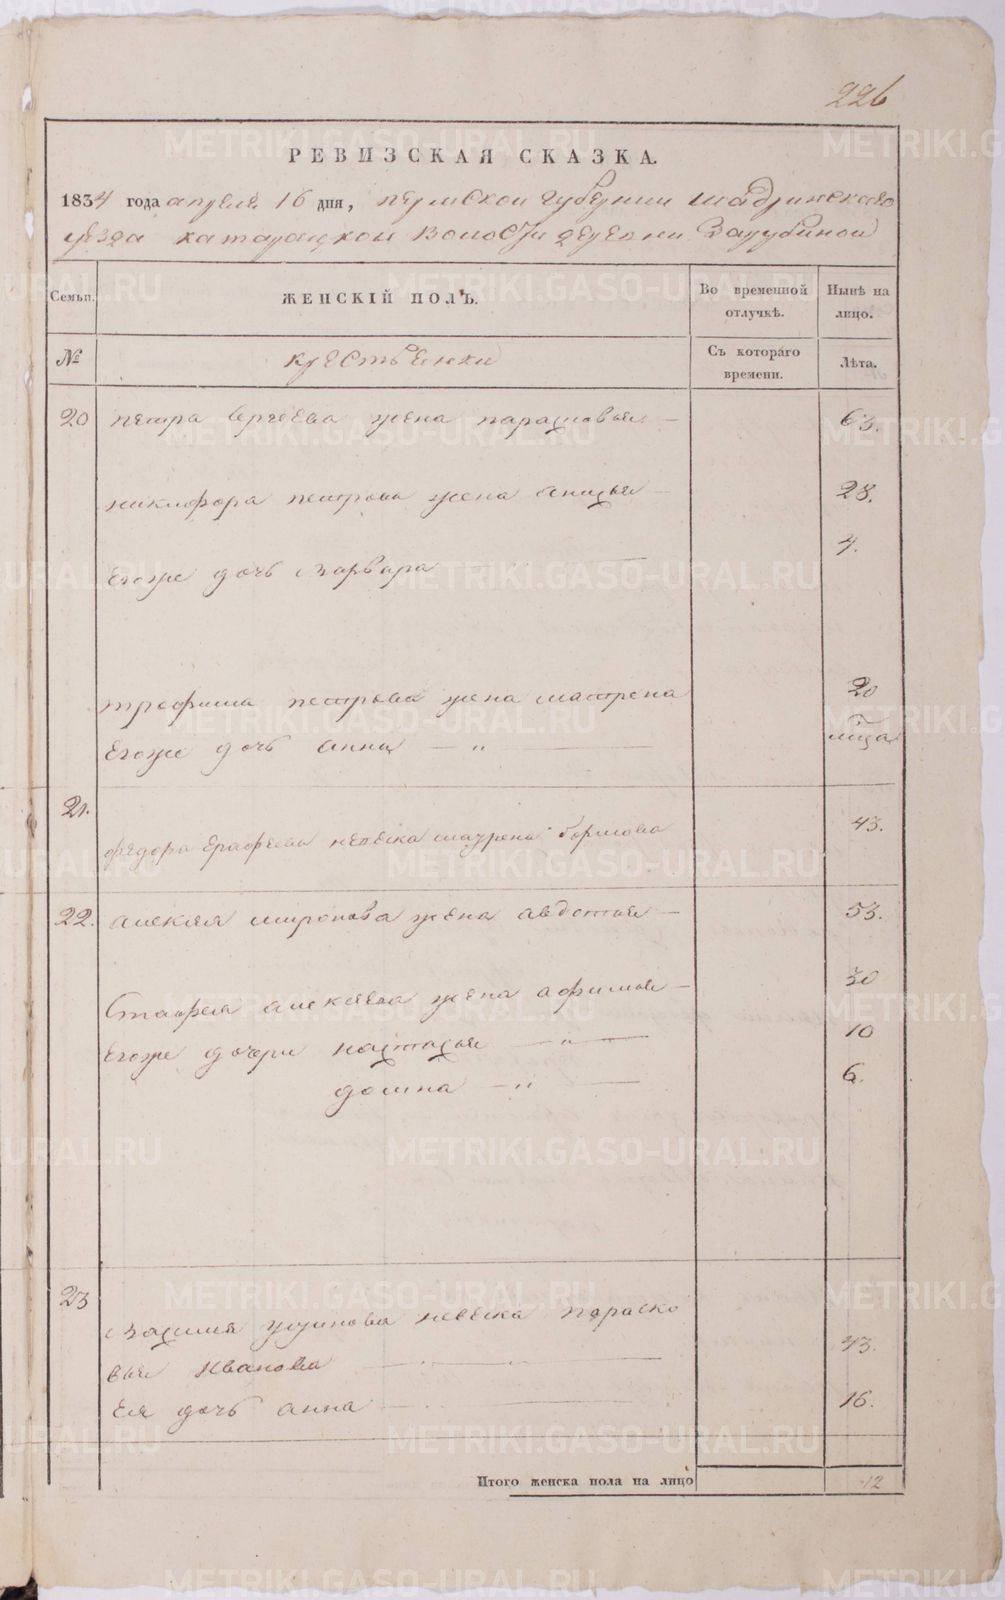 226
РЕВИЗСКАЯ СКАЗКА.
1834 года апреля 16 дня, пермской губернии шадринского
уезда катарацкой волости деревни Зарубиной
Семьи. ЖЕНСКІЙ ПОЛЪ. Во временной отлучкѣ. Нынѣ на лицо.
№ крестьянки Съ котораго времени. Лѣта.
20 петра сергеева жена парасковья 63.
никифора петрова жена анисья 28.
Егоже дочь варвара 4.
трефима петрова жена матрена 20
Егоже дочь анна
21. федора ерафеева невеска маурена 43.
22. алексея миронова жена авдотья 53.
Стафея алексеева жена афимья 30
Егоже дочери настасья 10
домна 6.
23 невеска параско
вья Иванова 43.
Ея дочь анна 16.
Итого женска пола на лицо 12
METRIKI.GASO-URAL.RU